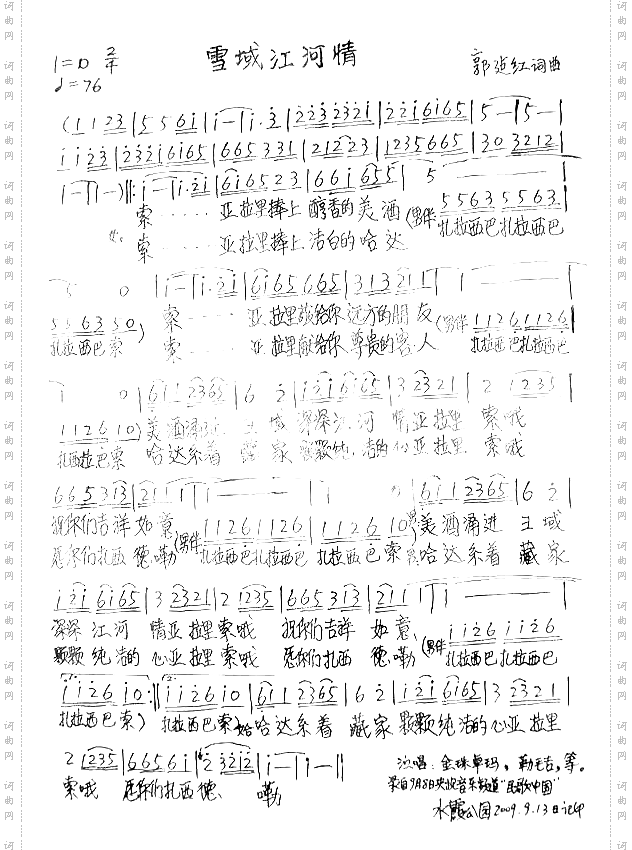 雪域江河情
1=D 2/4
♩=76
郭廷红词曲
(1 1 2 3 | 5 5 6 i | i — | i · 3 | 2 2 3 2 3 2 i | 2 2 i 6 i 6 5 | 5 — | 5 — |
i i 2 3 | 2 3 2 i 6 i 6 5 | 6 6 5 3 3 1 | 2 1 2 2 3 | 1 2 3 5 6 6 5 | 3 0 3 2 1 2 |
1 — | 1 — ) ‖: i — | i · 2 i | 6 i 6 5 2 3 | 6 6 i 6 5 5 | 5 —
5 5 6 3 5 5 6 3
索 · · · · · 亚拉里捧上 醇香的美酒 (男伴 扎拉西巴扎拉西巴
索 · · · · · 亚拉里捧上 洁白的哈达
5 0 | i — | i · 2 i | 6 i 6 5 6 6 5 | 3 1 3 2 1 1 | 1 — |
5 5 6 3 5 0) (男伴 1 1 2 6 1 1 2 6
扎拉西巴索 索 · · · · 亚拉里献给你 远方的朋友 扎拉西巴扎拉西巴
索 · · · · 亚拉里献给你 尊贵的客人
1 0 | 6 i 1 2 3 6 5 | 6 2 | i 2 i 6 i 6 5 | 3 2 3 2 1 | 2 1 2 3 5 |
1 1 2 6 1 0) 美酒涌进 王域 深深江河 情亚拉里 索哦
扎西拉巴索 哈达系着 藏家 颗颗纯洁的心亚拉里 索哦
6 6 5 3 1 3 | 2 1 1 1 | i — | i | 6 i 1 2 3 6 5 | 6 2 |
祝你们吉祥如意 (男伴 1 1 2 6 1 1 2 6 | 1 1 2 6 1 0) 美酒涌进 王域
愿你们扎西德勒 扎拉西巴扎拉西巴 扎拉西巴索 哈达系着 藏家
i 2 i 6 i 6 5 | 3 2 3 2 1 | 2 1 2 3 5 | 6 6 5 3 1 3 | 2 1 1 1 | 1 |
深深江河 情亚拉里索哦 祝你们吉祥 如意 (男伴 i i 2 6 i i 2 6
颗颗纯洁的 心亚拉里索哦 愿你们扎西 德勒 扎拉西巴扎拉西巴
i i 2 6 i 0 :‖ i i 2 6 i 0 | 6 i 1 2 3 6 5 | 6 2 | i 2 i 6 i 6 5 | 3 2 3 2 1 |
扎拉西巴索) 扎拉西巴索 哈达系着 藏家 颗颗纯洁的心亚拉里
2 1 2 3 5 | 6 6 5 6 i | 2 3 2 i 2 | i — | i — ‖
索哦 愿你们扎西德 勒
演唱：金珠卓玛，勒毛吉，等。
录自9月8日央视音乐频道“民歌中国”
水霞公园2009.9.13日记印
词曲网